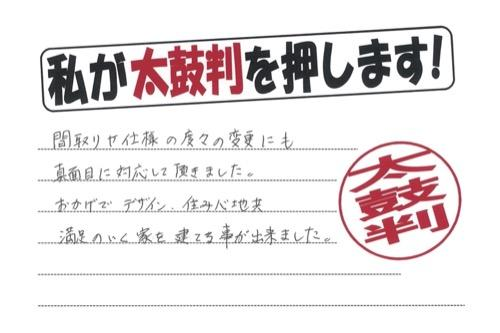 私が太鼓判を押します!
間取りや仕様の度々の変更にも
真面目に対応して頂きました。
おかげで デザイン、住み心地共
満足のいく家を建てる事が出来ました。
太鼓判